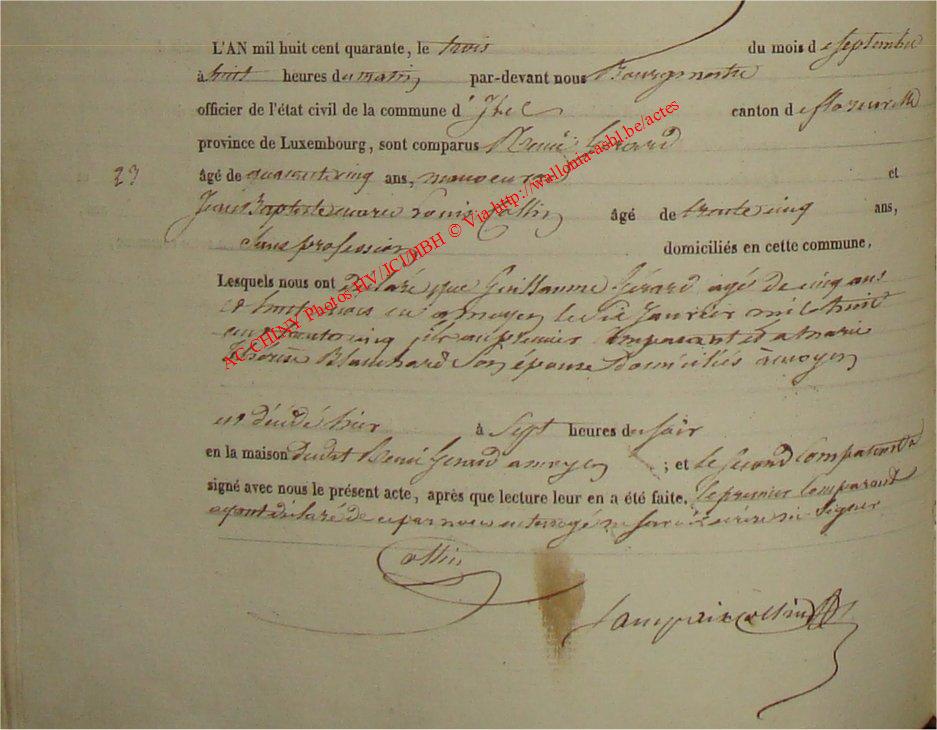 L'AN mil huit cent quarante, le trois du mois de septembre
à huit heures du matin par-devant nous Bourgmestre
officier de l'état civil de la commune d' Jzel canton de florenville
province de Luxembourg, sont comparus René Gerard
23 âgé de quarante cinq ans, manoeuvre et
Jean Baptiste marie Louis Collin âgé de trente cinq ans,
sans profession domiciliés en cette commune,
Lesquels nous ont déclaré que Guillaume Gérard agé de cinq ans
et huit mois né a moyen le six Janvier mil huit
cent trente cinq fils au premier comparant et a marie
Thérèse Blanchard son épouse domiciliés à moyen
est décédé hier à sept heures du soir
en la maison dudit René Gerard a moyen ; et le second comparant a
signé avec nous le présent acte, après que lecture leur en a été faite, le premier comparant
ayant déclaré de ce par nous interrogé ne savoir écrire ni signer
Collin
Collin
AC CHINY Photos HV/JCI/HBH © Via http://wallonia-asbl.be/actes